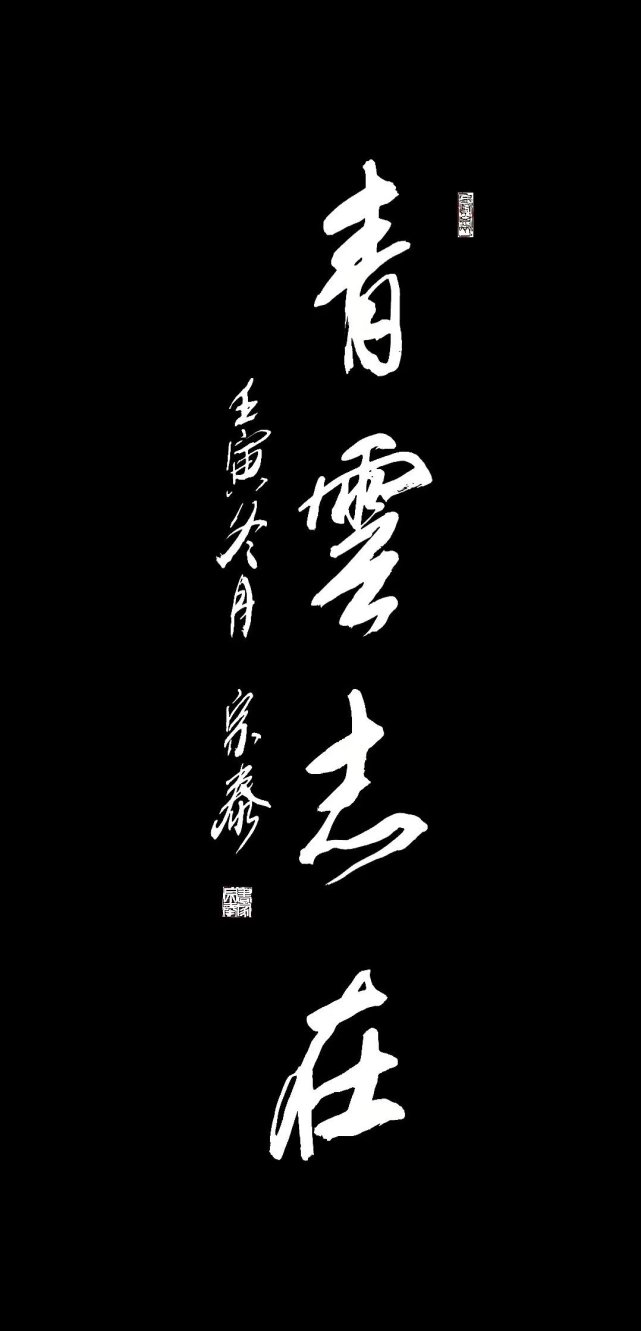 青雲志在
壬寅冬月
宗泰